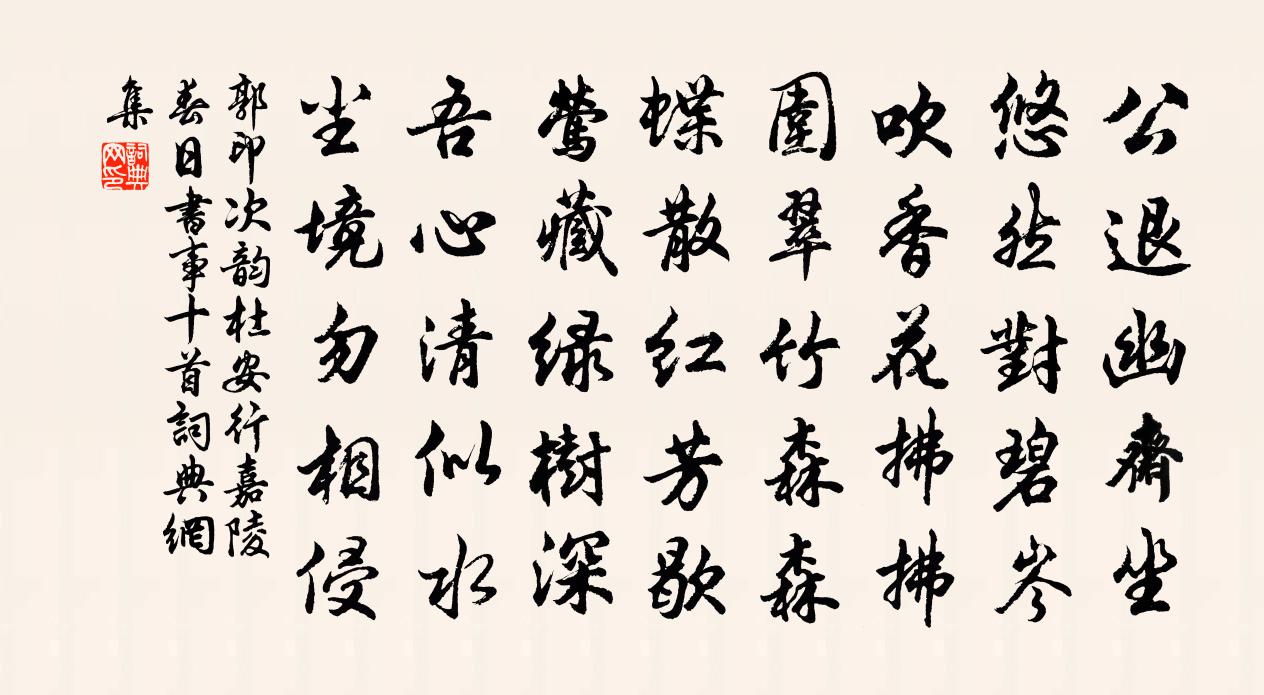 公退幽齋坐
悠然對碧岑
吹香花拂拂
圍翠竹森森
蝶散红芳歇
鶯藏绿樹深
吾心清似水
尘境勿相侵
郭印次韵杜安行嘉陵
春日書事十首詞典網
集
詞典
网印